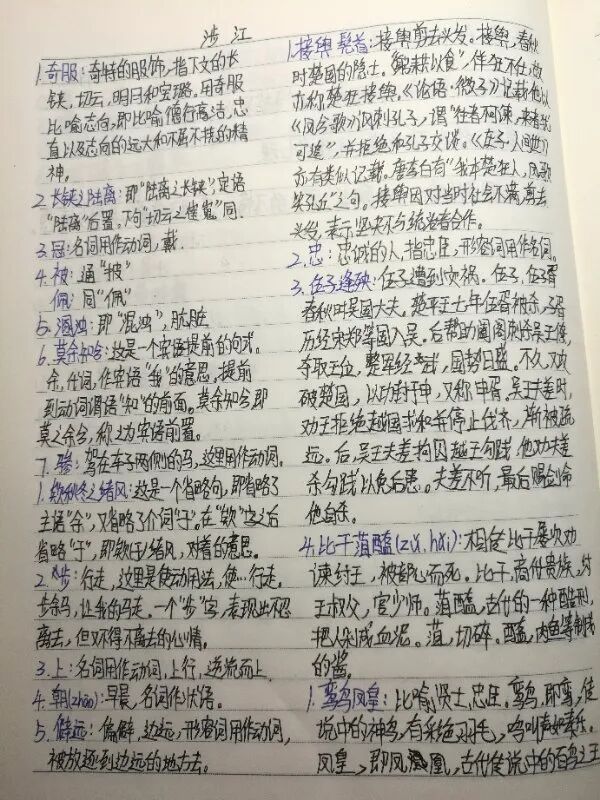 涉江
1.奇服:奇特的服饰,指下文的长
铗,切云,明月和宝璐。用奇服
比喻志向,即比喻德行高洁,忠
直以及志向的远大和不屈不挠的精
神。
2.长铗之陆离:即"陆离之长铗",定语
"陆离"后置。下句"切云之崔嵬"同。
3.冠:名词用作动词,戴。
4.被:通"披"
佩:同"佩"
5.溷浊:即"混浊",肮脏
6.莫余知兮:这是一个宾语提前的句式。
余,代词,作宾语"我"的意思。提前
到动词谓语"知"的前面。莫余知兮即
莫知余兮,称之为宾语前置。
7.骖:驾在车子两侧的马,这里用作动词。
1.欸秋冬之绪风:这是一个省略句,即省略了
主语"余",又省略了介词"于"。在"欸"字之后
省略"于",即欸(于)绪风,对着的意思。
2.步:行走,这里是使动用法,使…行走。
步余马,让我的马走。一个"步"字,表现出不忍
离去,但又不得不离去的心情。
3.上:名词用作动词,上行,逆流而上
4.朝(zhāo):早晨,名词作状语。
5.僻远:偏僻,边远,形容词用作动词,
被放逐到边远的地方去。
1.接舆髡首:接舆剪去头发。接舆,春秋
时楚国的隐士。"躬耕以食",佯狂不仕,故
亦称楚狂接舆。《论语·微子》记载他以
《凤兮歌》讽刺孔子,谓"往者不谏,来者犹
可追",并拒绝和孔子交谈。《庄子·人间世》
亦有类似记载。唐李白有"我本楚狂人,凤歌
笑孔丘"之句。接舆因对当时社会不满,剪去
头发,表示坚决不与统治者合作。
2.忠:忠诚的人,指忠臣,形容词用作名词。
3.伍子逢殃:伍子遭到灾祸。伍子,伍子胥
春秋时吴国大夫。楚平王七年伍胥被杀,子胥
历经宋郑等国入吴。后帮助阖闾刺杀吴王僚,
夺取王位,整军经武,国势日盛。不久,又攻
破楚国,以功封于申,又称申胥。吴王夫差时,
劝王拒绝越国求和并停止伐齐,渐被疏
远。后,吴王夫差拘囚越王勾践,他劝夫差
杀勾践以免后患。夫差不听,最后赐剑命
他自杀。
4.比干菹醢(zū,hǎi):相传比干屡次劝
谏纣王,被剖心而死。比干,商代贵族,纣
王叔父,官少师。菹醢,古代的一种酷刑,
把人剁成血泥。菹,切碎。醢,肉鱼等制成
的酱。
1.鸾鸟凤皇:比喻贤士,忠臣。鸾鸟,即鸾,传
说中的神鸟,有彩绝羽毛,鸣叫声如奏乐。
凤皇,即凤凰,古代传说中的百鸟之王